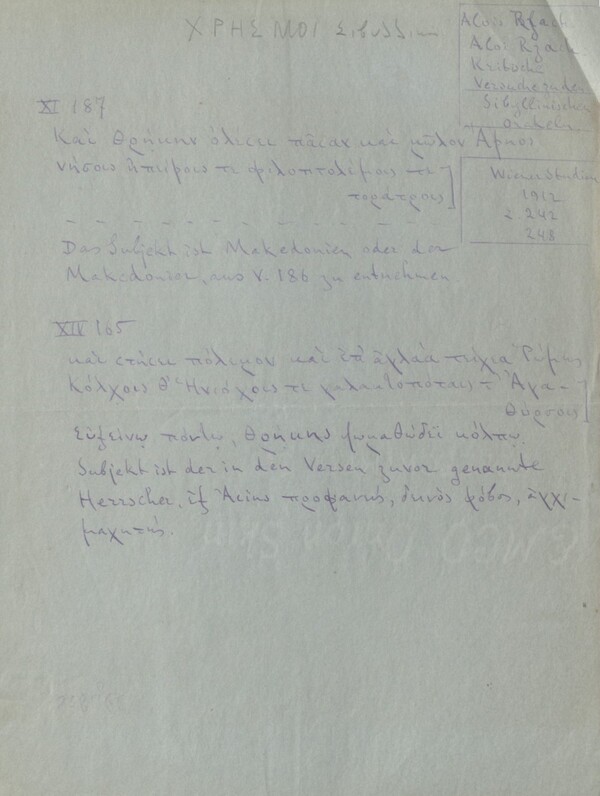 ΧΡΗΣΜΟΙ
Alois Rzach
Aloi Rzach
Kritische
Versuche zu den
Sibyllinischen
Orakeln
XI 187
Καὶ Θρῄκην ὀλέσει πᾶσαν καὶ Ἄρηος
νήσοις ἠπείροις τε φιλοπτολέμοις τε
Wiener Studien
1912
S. 242
248
Das Subjekt ist Makedonien oder der
Makedonier, aus V. 186 zu entnehmen
XIV 165
καὶ στήσει πόλεμον καὶ ἐπ' ἀγλαὰ τείχεα Ῥώμης
Κόλχοις θ' Ἡνιόχοις τε γαλακτοπόταις τ' Ἀγα-
θύρσοις
Εὐξείνῳ πόντῳ, Θρῄκης ψαμαθώδεϊ κόλπῳ.
Subjekt ist der in den Versen zuvor genannte
Herrscher, ἐξ Ἀσίης προφανής, δεινὸς φόβος, ἀγχι-
μαχητής.